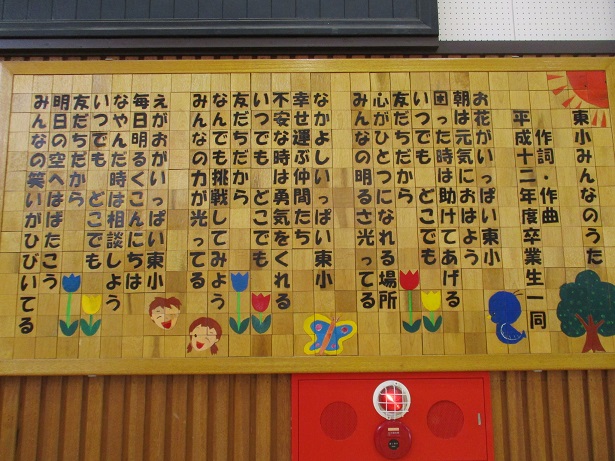 東小みんなのうた
作詞・作曲
平成十二年度卒業生一同
お花がいっぱい東小
朝は元気におはよう
困った時は助けてあげる
いつでも どこでも
友だちだから
心がひとつになれる場所
みんなの明るさ光ってる
なかよしいっぱい東小
幸せ運ぶ仲間たち
不安な時は勇気をくれる
いつでも どこでも
友だちだから
なんでも挑戦してみよう
みんなの力が光ってる
えがおがいっぱい東小
毎日明るくこんにちは
なやんだ時は相談しよう
いつでも どこでも
友だちだから
明日の空へはばたこう
みんなの笑いがひびいてる